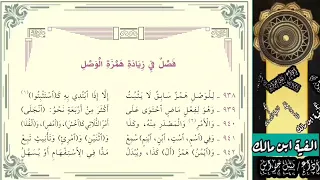 فَصْلٌ فِي زِيَادَةِ هَمْزَةِ الْوَصْلِ
٩٣٨ - لِلْوَصْلِ هَمْزٌ سَابِقٌ لَا يَثْبُتُ إِلَّا إِذَا ابْتُدِي بِهِ كَاسْتَثْبِتُوا (١)
٩٣٩ - وَهْوَ لِفِعْلٍ مَاضٍ احْتَوَى عَلَى أَكْثَرَ مِنْ أَرْبَعَةٍ نَحْوُ: (انْجَلَى)
٩٤٠ - وَالْأَمْرِ وَالْمَصْدَرِ مِنْهُ، وَكَذَا أَمْرُ الثُّلَاثِيْ كَـ(اخْشَ)، وَ(امْضِ)، وَ(انْفُذَا)
٩٤١ - وَفِي (اسْمٍ، اسْتٍ، ابْنٍ، ابْنِمٍ) سُمِعْ وَ(اثْنَيْنِ)، وَ(امْرِئٍ)، وَتَأْنِيثٍ تَبِعْ
٩٤٢ - وَ(ايْمُنُ) هَمْزُ (الْ) كَذَا، وَيُبْدَلُ مَدًّا فِي الِاسْتِفْهَامِ أَوْ يُسَهَّلُ
الفية ابن مالك